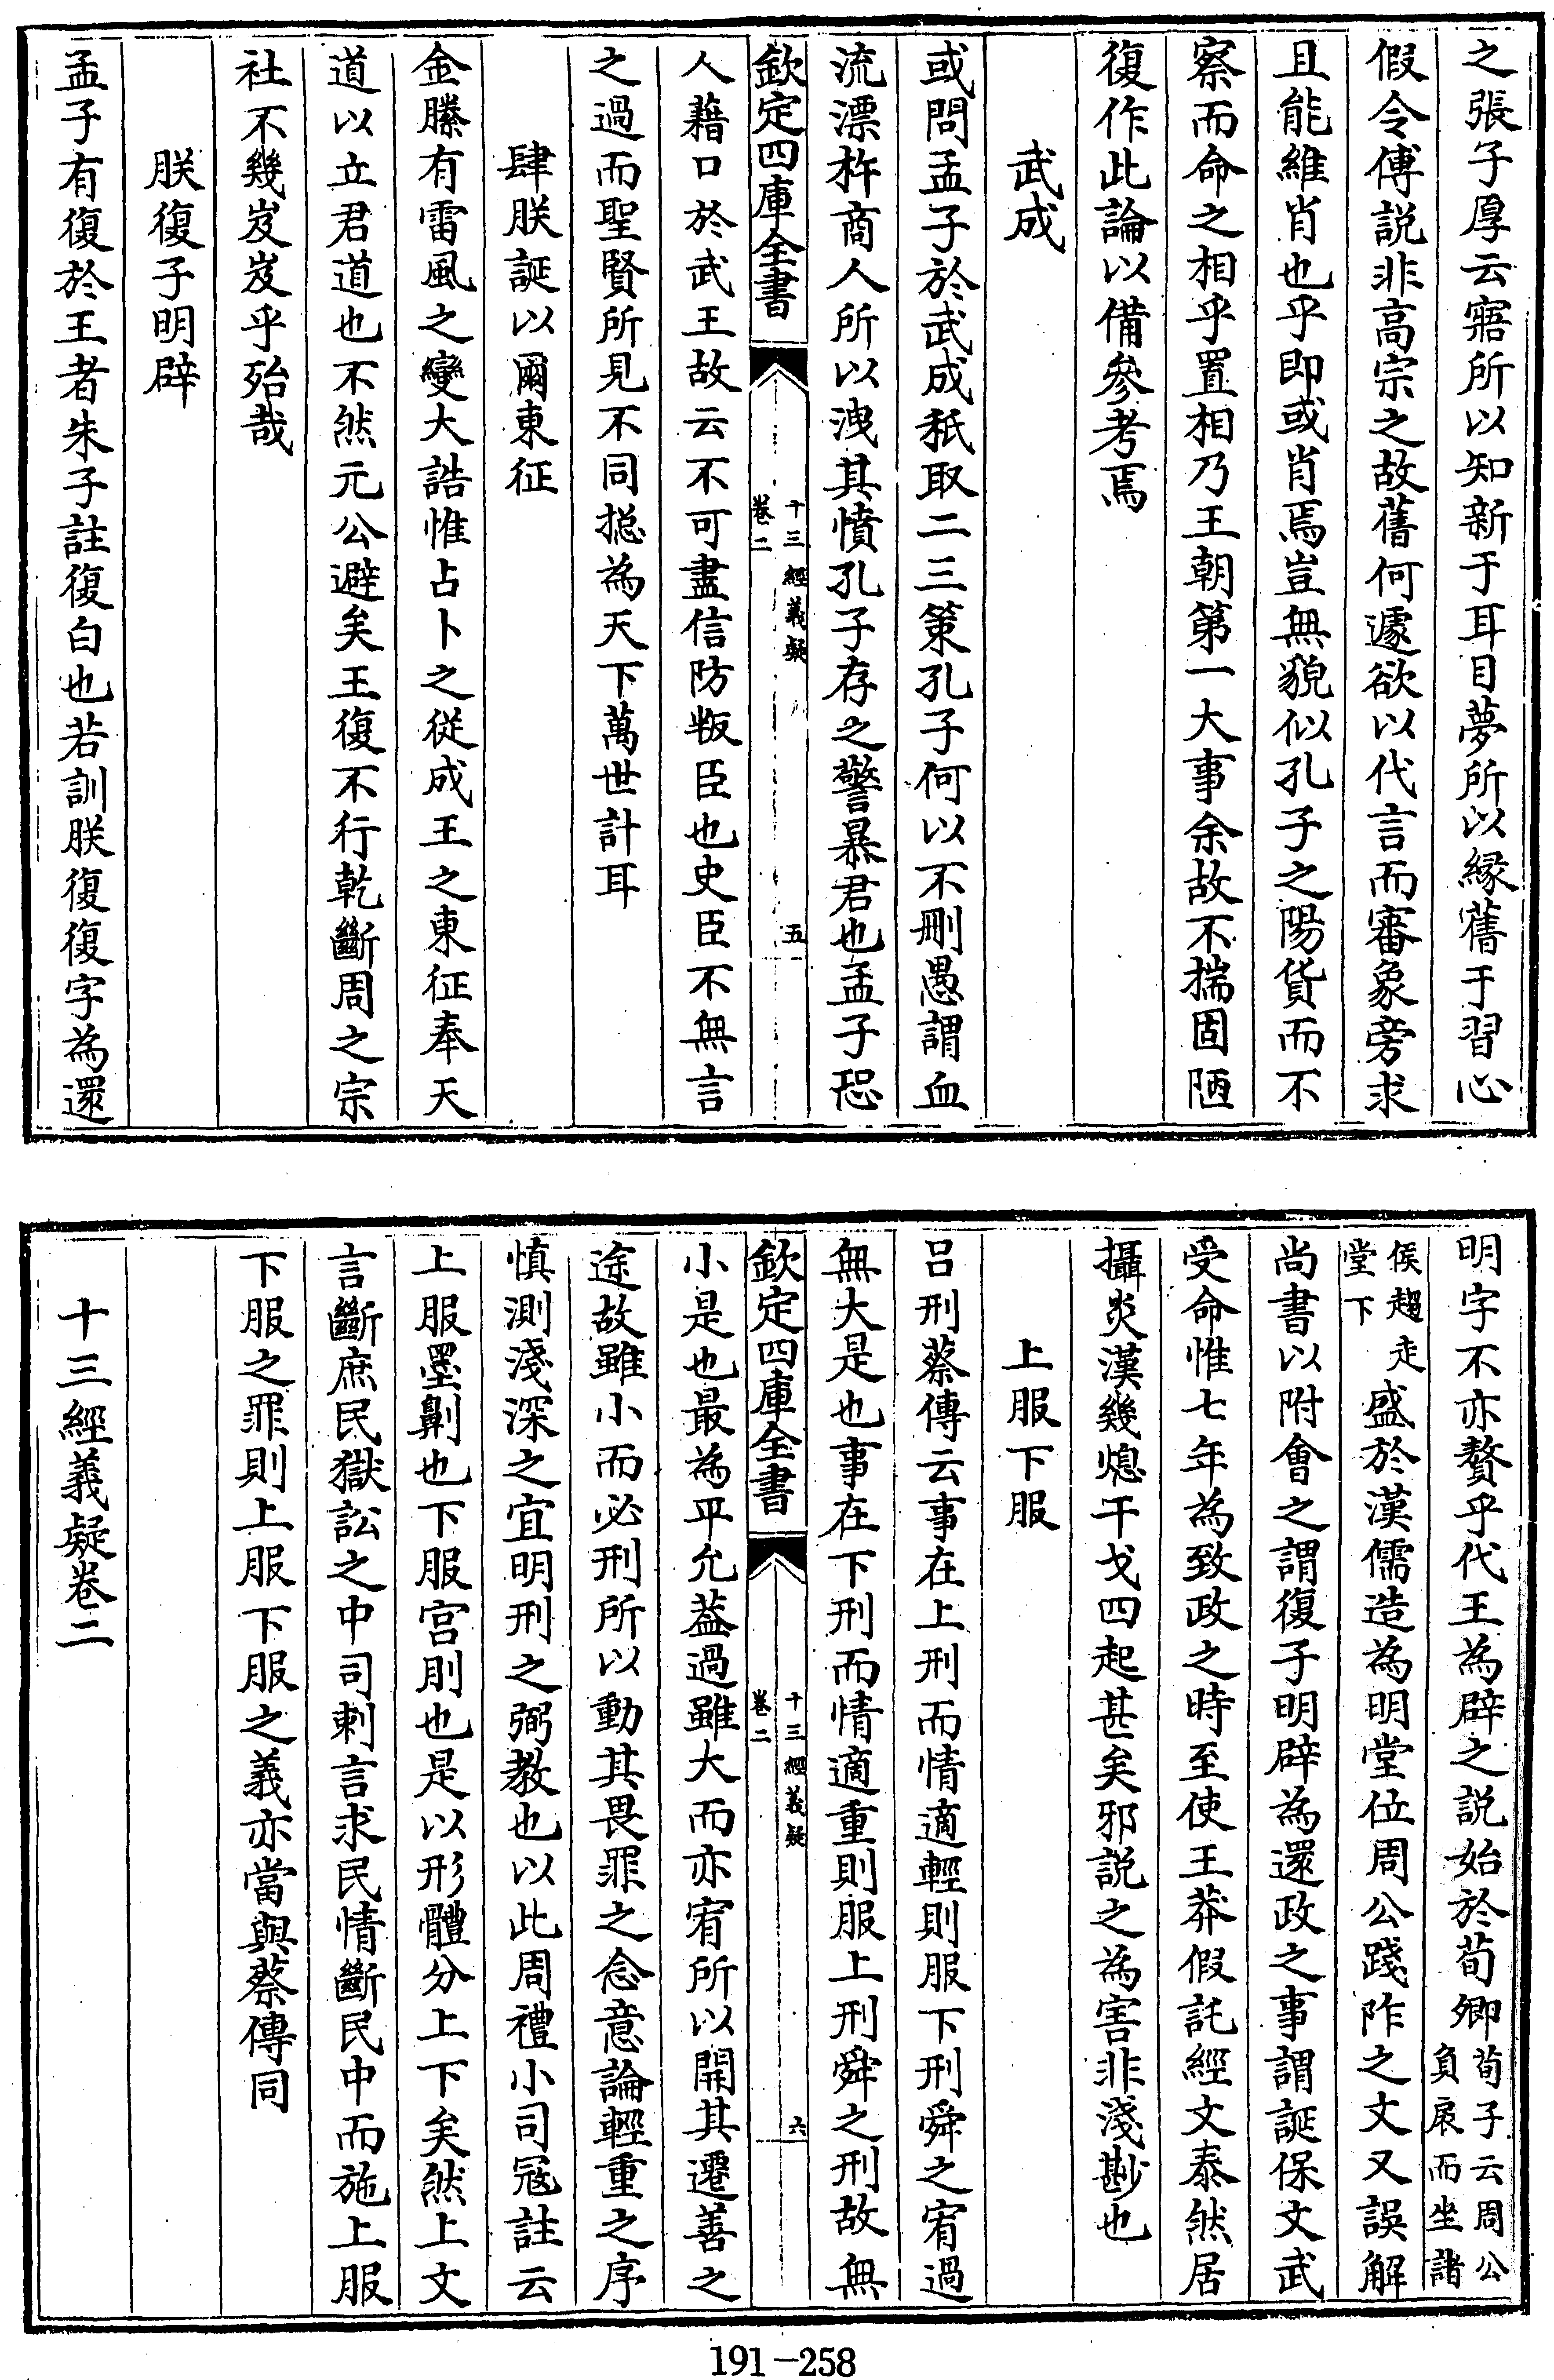 之張子厚云寤所以知新于耳目夢所以縁舊于習心
假令傅説非高宗之故舊何遽欲以代言而審象旁求
且能維肖也乎即或肖焉豈無貌似孔子之陽貨而不
察而命之相乎置相乃王朝第一大事余故不揣固陋
復作此論以備參考焉
武成
或問孟子於武成秖取二三策孔子何以不刪愚謂血
流漂杵商人所以洩其憤孔子存之警暴君也孟子恐
欽定四庫全書
十三經義疑
卷二
五
人藉口於武王故云不可盡信防叛臣也史臣不無言
之過而聖賢所見不同揔為天下萬世計耳
肆朕誕以爾東征
金縢有雷風之變大誥惟占卜之従成王之東征奉天
道以立君道也不然元公避矣王復不行乾斷周之宗
社不幾岌岌乎殆哉
朕復子明辟
孟子有復於王者朱子註復白也若訓朕復復字為還
明字不亦贅乎代王為辟之説始於荀卿荀子云周公負扆而坐諸
侯趨走堂下盛於漢儒造為明堂位周公踐阼之文又誤解
尚書以附會之謂復子明辟為還政之事謂誕保文武
受命惟七年為致政之時至使王莽假託經文泰然居
攝炎漢幾熄干戈四起甚矣邪説之為害非淺尠也
上服下服
吕刑蔡傳云事在上刑而情適輕則服下刑舜之宥過
無大是也事在下刑而情適重則服上刑舜之刑故無
欽定四庫全書
十三經義疑
卷二
六
小是也最為平允葢過雖大而亦宥所以開其遷善之
途故雖小而必刑所以動其畏罪之念意論輕重之序
慎測淺深之宜明刑之弼教也以此周禮小司冦註云
上服墨劓也下服宫刖也是以形體分上下矣然上文
言斷庶民獄訟之中司刺言求民情斷民中而施上服
下服之罪則上服下服之義亦當與蔡傳同
十三經義疑卷二
191-258